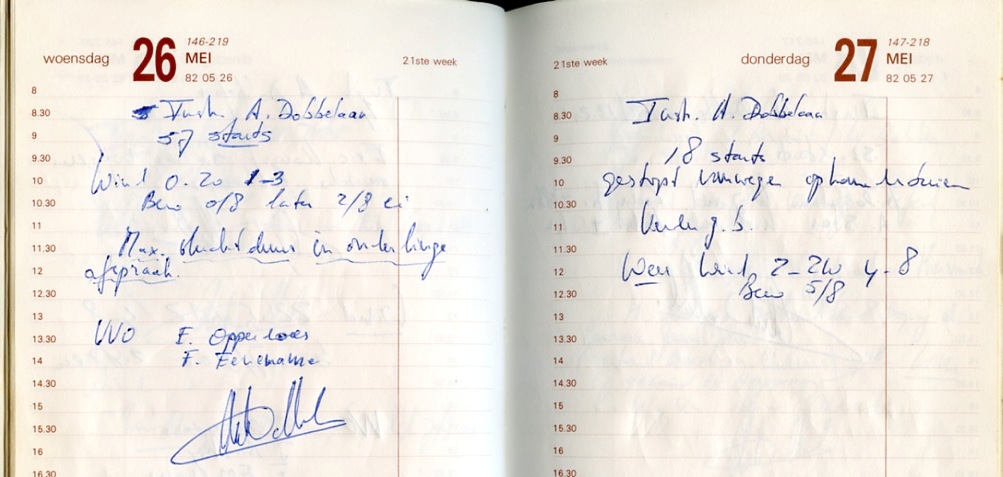 woensdag 26 146-219
MEI
82 05 26
21ste week
8
8.30
9
9.30
10
10.30
11
11.30
12
12.30
13
13.30
14
14.30
15
15.30
16
16.30
Instr. A. Dobbelaar
57 starts
Wind 0-20 1-3
Bew 0/8 later 2/8 ci
Max. vluchtduur in onderlinge
afspraak.
VVO E.
F.
21ste week
donderdag 27 147-218
MEI
82 05 27
8
8.30
9
9.30
10
10.30
11
11.30
12
12.30
13
13.30
14
14.30
15
15.30
16
16.30
Instr. A. Dobbelaar
18 starts
gestopt vanwege opkomende
Verder g.b.
Weer Wind 2-20 4-8
Bew 5/8